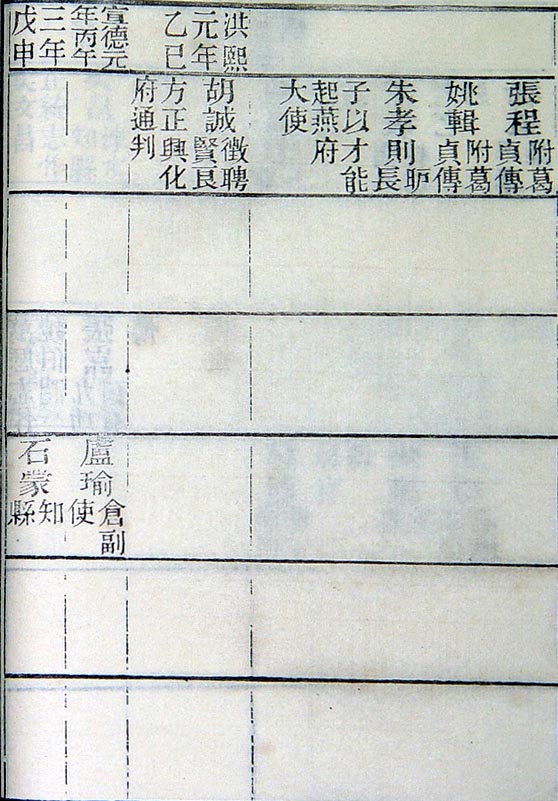 張程
附葛
貞傳
姚輯
附葛
貞傳
朱孝則
長
子以才能
起燕府
大使
洪熙
元年
乙巳
胡誠
徵聘
賢良
方正興化
府通判
宣德元
年丙午
盧瑜
倉副
使
三年
戊申
石蒙
知
縣